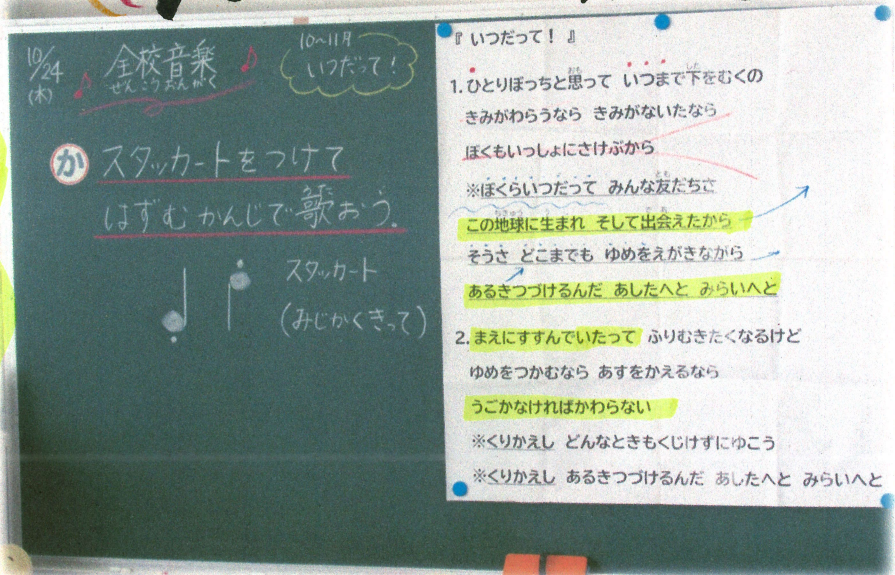 10/24
(木)
全校音楽
ぜんこうおんがく
10〜11月
いつだって!
か スタッカートをつけて
はずむかんじで歌おう。
うた
スタッカート
(みじかくきって)
『 いつだって! 』
1.ひとりぼっちと思って いつまで下をむくの
おも
した
きみがわらうなら きみがないたなら
ぼくもいっしょにさけぶから
※ぼくらいつだって みんな友だちさ
とも
この地球に生まれ そして出会えたから
ちきゅう
そうさ どこまでも ゆめをえがきながら
あるきつづけるんだ あしたへと みらいへと
2.まえにすすんでいたって ふりむきたくなるけど
ゆめをつかむなら あすをかえるなら
うごかなければかわらない
※くりかえし どんなときもくじけずにゆこう
※くりかえし あるきつづけるんだ あしたへと みらいへと